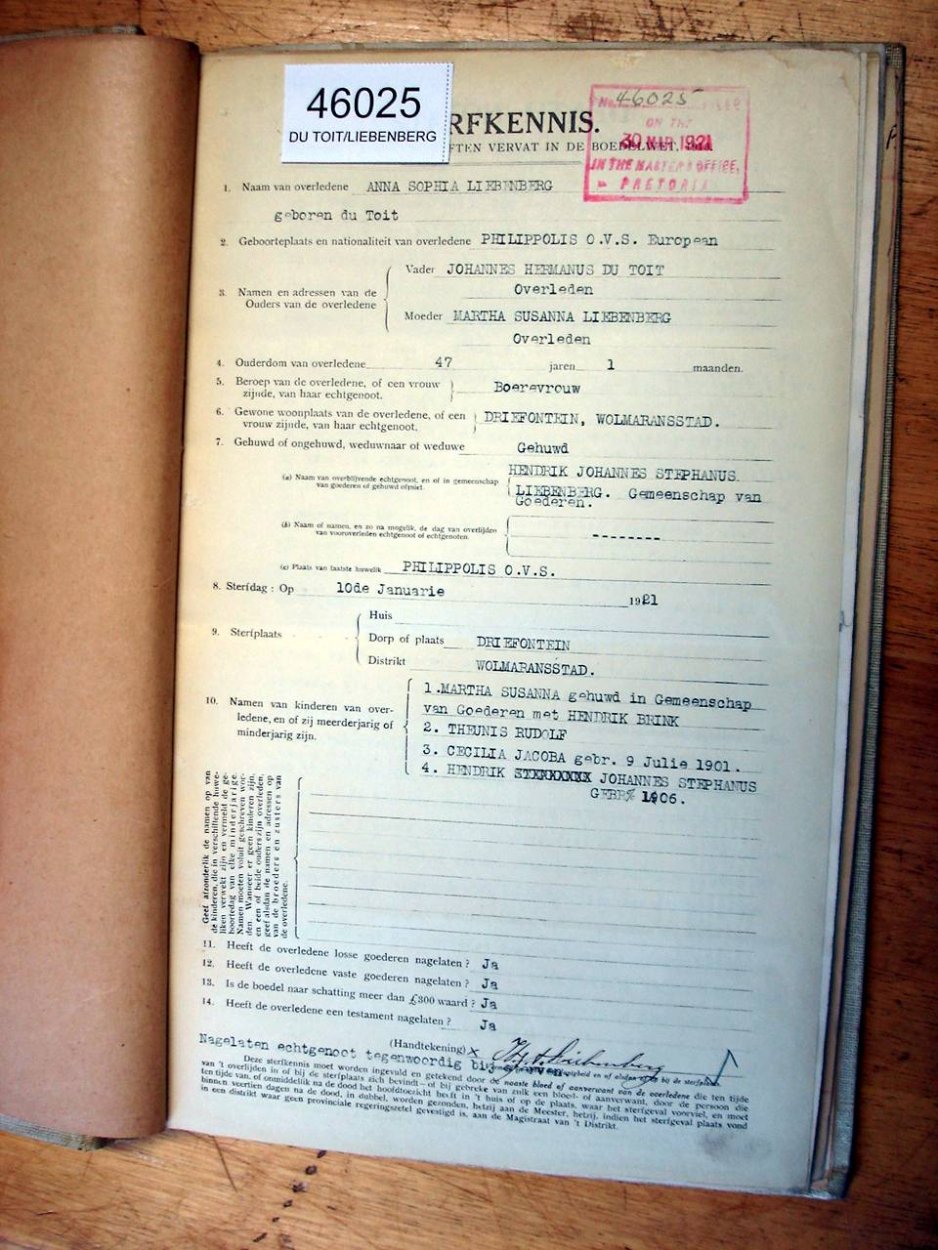 46025
DU TOIT/LIEBENBERG
46025
ON THE
30 MAR 1921
IN THE MASTER'S OFFICE,
PRETORIA
RFKENNIS.
FTEN VERVAT IN DE BOEDELWET,
1. Naam van overledene ANNA SOPHIA LIEBENBERG
geboren du Toit
2. Geboorteplaats en nationaliteit van overledene PHILIPPOLIS O.V.S. European
3. Namen en adressen van de
Ouders van de overledene
Vader JOHANNES HERMANUS DU TOIT
Overleden
Moeder MARTHA SUSANNA LIEBENBERG
Overleden
4. Ouderdom van overledene 47 jaren 1 maanden.
5. Beroep van de overledene, of een vrouw
zijnde, van haar echtgenoot. Boerevrouw
6. Gewone woonplaats van de overledene, of een
vrouw zijnde, van haar echtgenoot. DRIEFONTEIN, WOLMARANSSTAD.
7. Gehuwd of ongehuwd, weduwnaar of weduwe Gehuwd
(a) Naam van overblijvende echtgenoot, en of in gemeenschap
van goederen of gehuwd of niet.
HENDRIK JOHANNES STEPHANUS
LIEBENBERG. Gemeenschap van
Goederen.
(b) Naam of namen, en zo na mogelik, de dag van overlijden
van vooroverleden echtgenoot of echtgenoten. --------
(c) Plaats van laatste huwelik PHILIPPOLIS O.V.S.
8. Sterfdag : Op 10de Januarie 1921
9. Sterfplaats
Huis
Dorp of plaats DRIEFONTEIN
Distrikt WOLMARANSSTAD.
10. Namen van kinderen van over-
ledene, en of zij meerderjarig of
minderjarig zijn.
1. MARTHA SUSANNA gehuwd in Gemeenschap
van Goederen met HENDRIK BRINK
2. THEUNIS RUDOLF
3. CECILIA JACOBA gebr. 9 Julie 1901.
4. HENDRIK JOHANNES STEPHANUS
GEBR 1906.
Geef afzonderlik de namen op van
de kinderen, die in verschillende huwe-
liken verwekt zijn en vermeldt de ge-
boortedag van elke minderjarige.
Namen moeten voluit geschreven wor-
den. Wanneer er geen kinderen zijn,
en een of beide ouders zijn overleden,
geef alsdan de namen en adressen op
van de broeders en zusters van
de overledene.
11. Heeft de overledene losse goederen nagelaten ? Ja
12. Heeft de overledene vaste goederen nagelaten ? Ja
13. Is de boedel naar schatting meer dan £300 waard ? Ja
14. Heeft de overledene een testament nagelaten ? Ja
(Handtekening) x Liebenberg
Nagelaten echtgenoot tegenwoordig bij sterven
Deze sterfkennis moet worden ingevuld en getekend door de naaste bloed of aanverwant van de overledene die ten tijde
van 't overlijden in of bij de sterfplaats zich bevindt—of bij gebreke van zulk een bloed- of aanverwant, door de persoon die
ten tijde van, of onmiddellik na de dood het hoofdtoezicht heeft in 't huis of op de plaats, waar het sterfgeval voorviel, en moet
binnen veertien dagen na de dood, in dubbel, worden gezonden, hetzij aan de Meester, hetzij, indien het sterfgeval plaats vond
in een distrikt waar geen provinciale regeringszetel gevestigd is, aan de Magistraat van 't Distrikt.